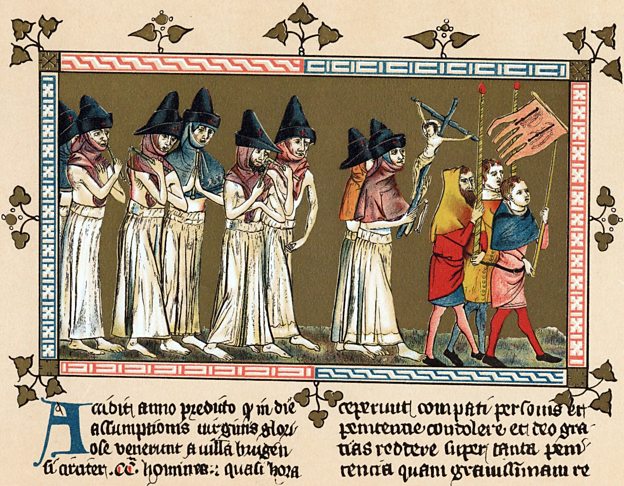 Accidit anno predicto q in die
assumptionis uirginis glori
ose venerunt a villa brugen
si circiter .CC. homines: quasi hora
ceperunt compati personis et
penitentie condolere et deo gra
tias reddere super tanta peni
tencia quam grauissimam re